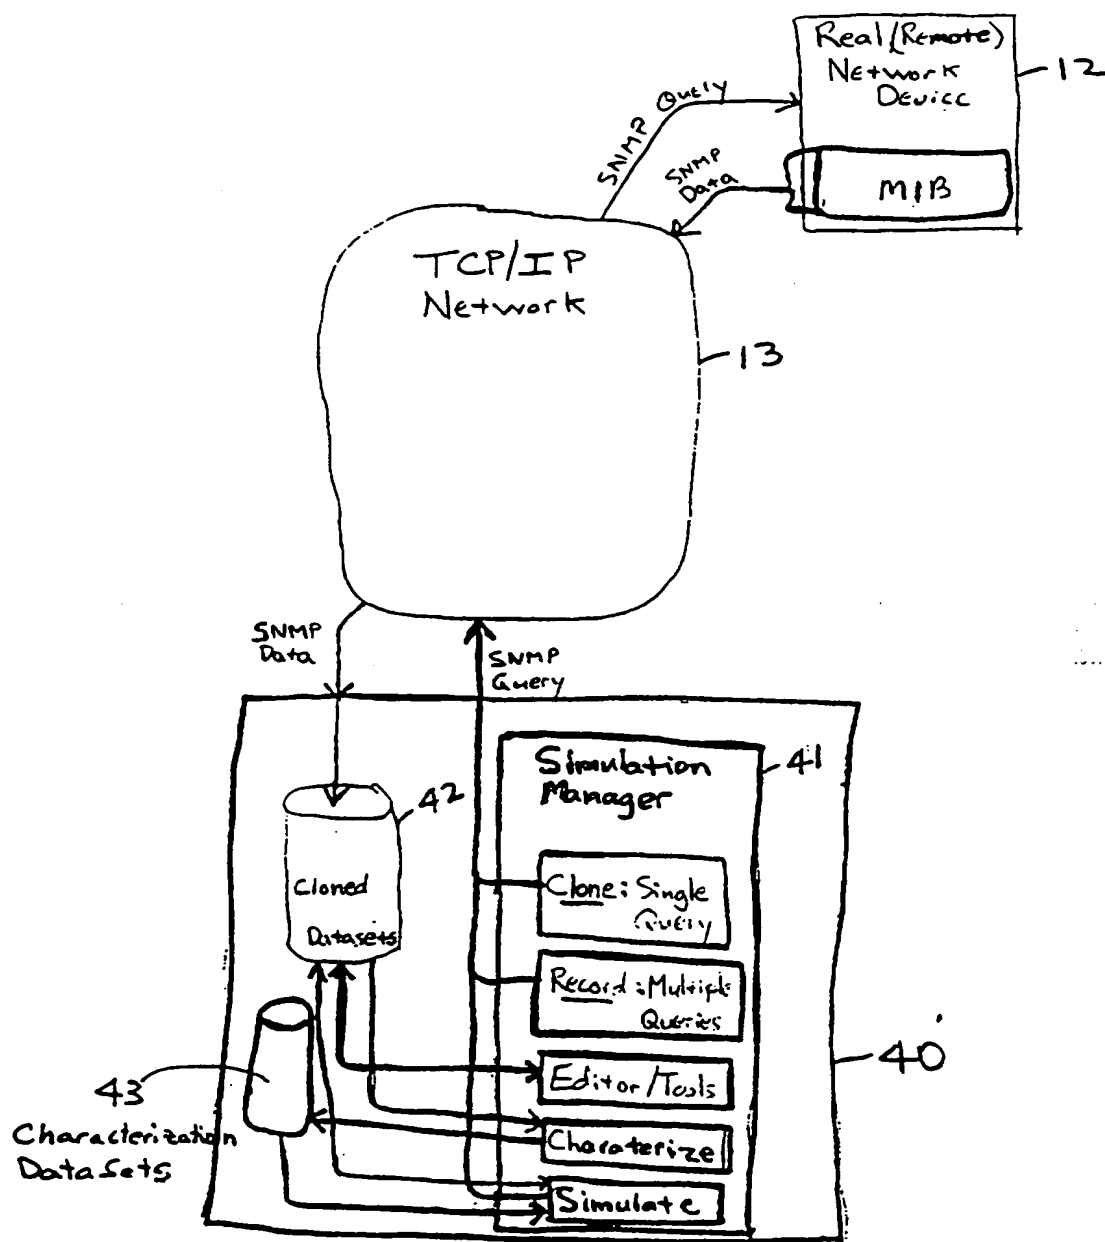 Real (Remote)
Network
Device
12
SNMP Query
SNMP
Data
MIB
TCP/IP
Network
13
SNMP
Data
SNMP
Query
Simulation
Manager
41
42
Cloned
Datasets
Clone: Single
Query
Record: Multiple
Queries
40'
Editor/Tools
43
Characterization
DataSets
Charaterize
Simulate